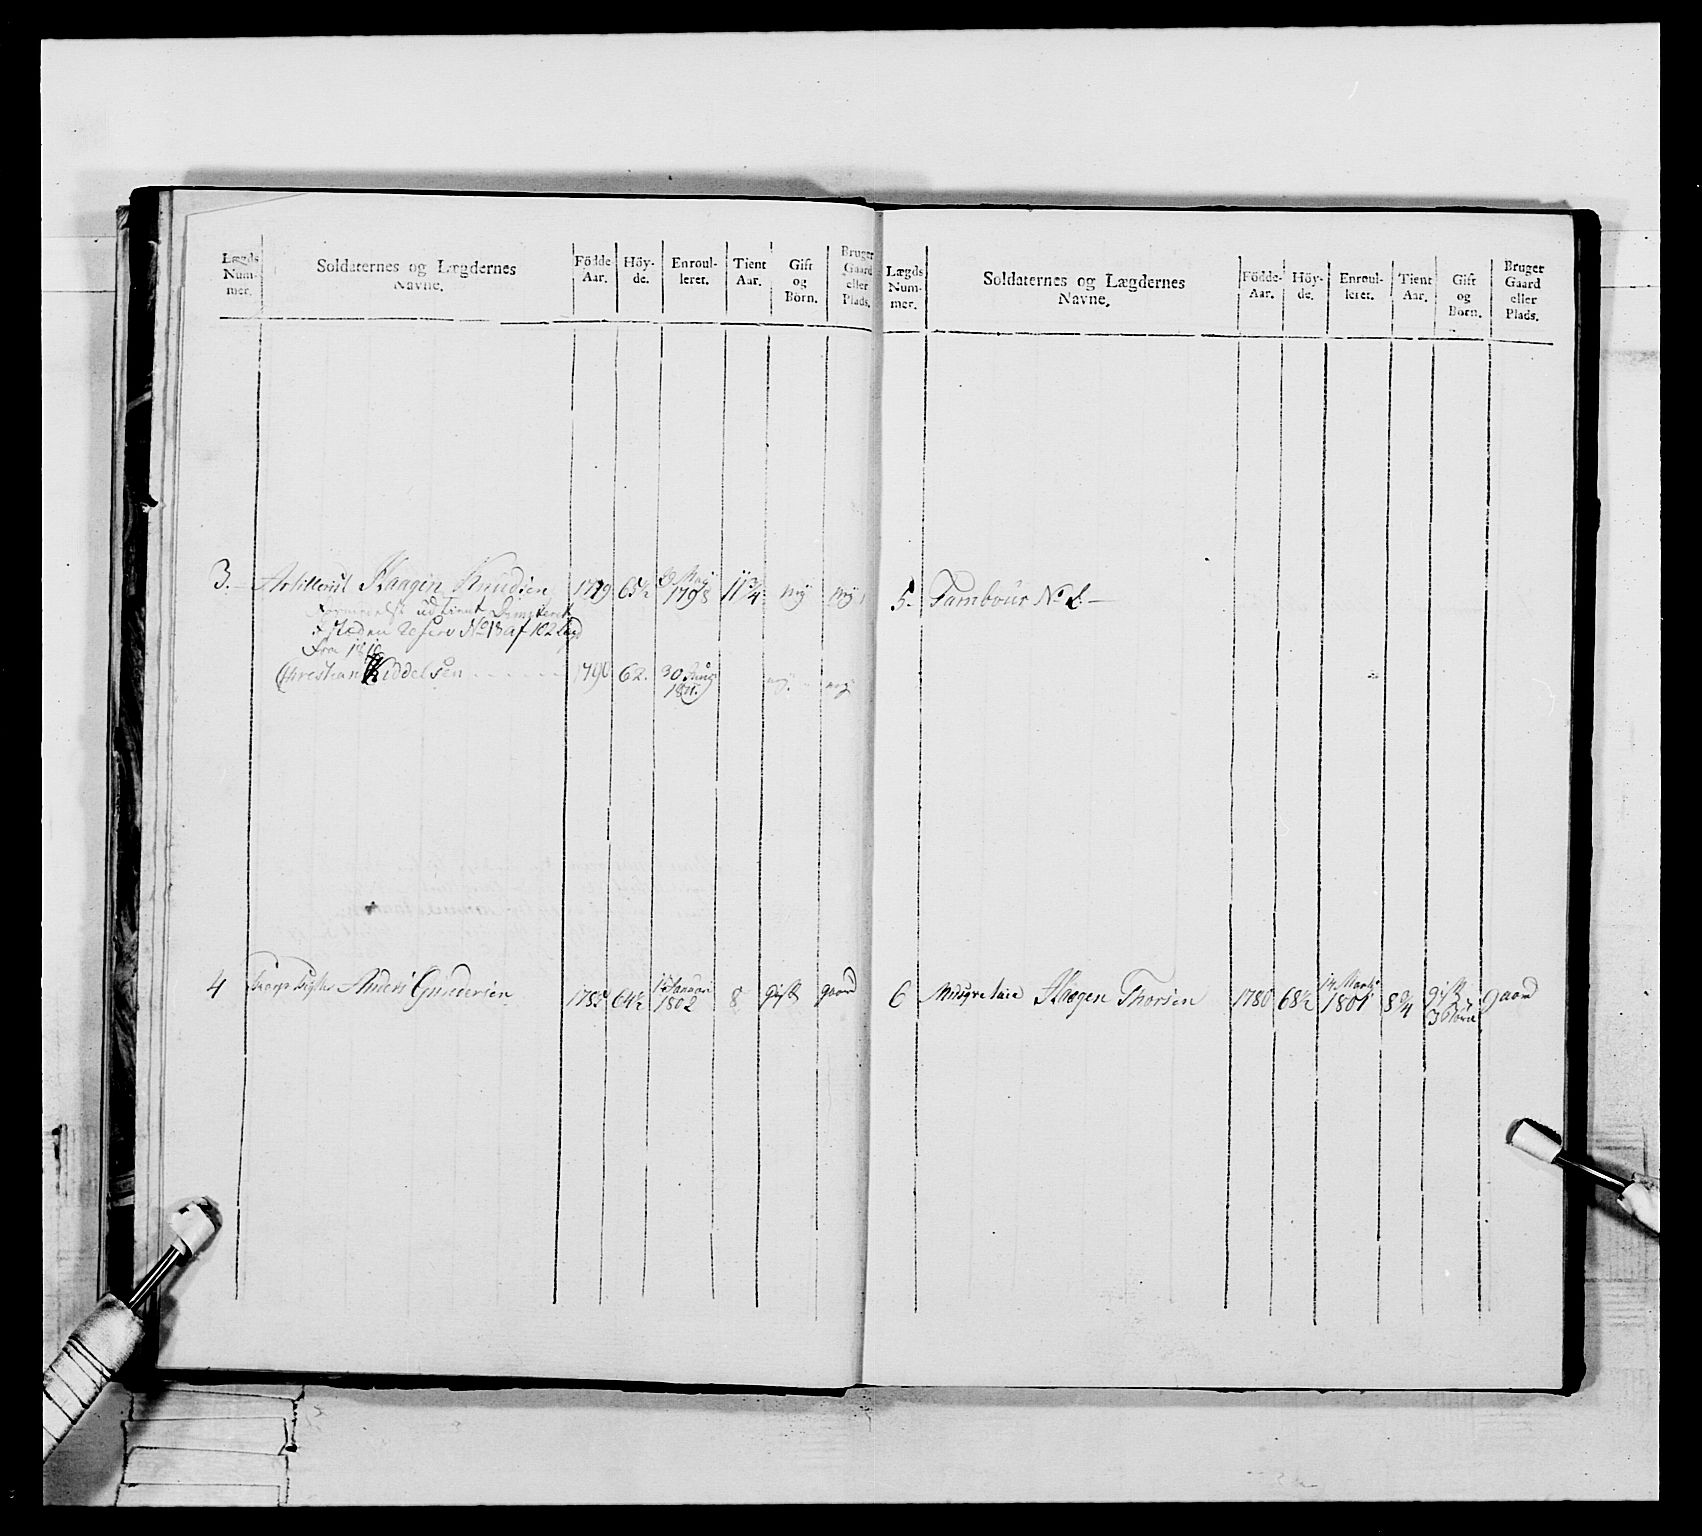 Lægds Num- mer.
Soldaternes og Lægdernes Navne.
Födde Aar.
Höy- de.
Enroul- leret.
Tient Aar.
Gift og Börn.
Bruger Gaard eller Plads.
3. Artillerist Haagen Knudsen 1779 65½ Maj 1798 11¾ nej nej
No 18 af 102
Fra 1810
Christian Kiddelsen 1790 62. 30 Aug 1811. nej nej
4 Anders Gundersen 1785 64½ Januar 1802 8 gift gaard
Lægds Num- mer.
Soldaternes og Lægdernes Navne.
Födde- Aar.
Höy- de.
Enroul- leret.
Tient Aar.
Gift og Börn.
Bruger Gaard eller Plads.
5. Tambour No 2. —
6 Haagen Thorsen 1780 68½ 14 Marts 1801 8¾ gift 3 Börn gaard